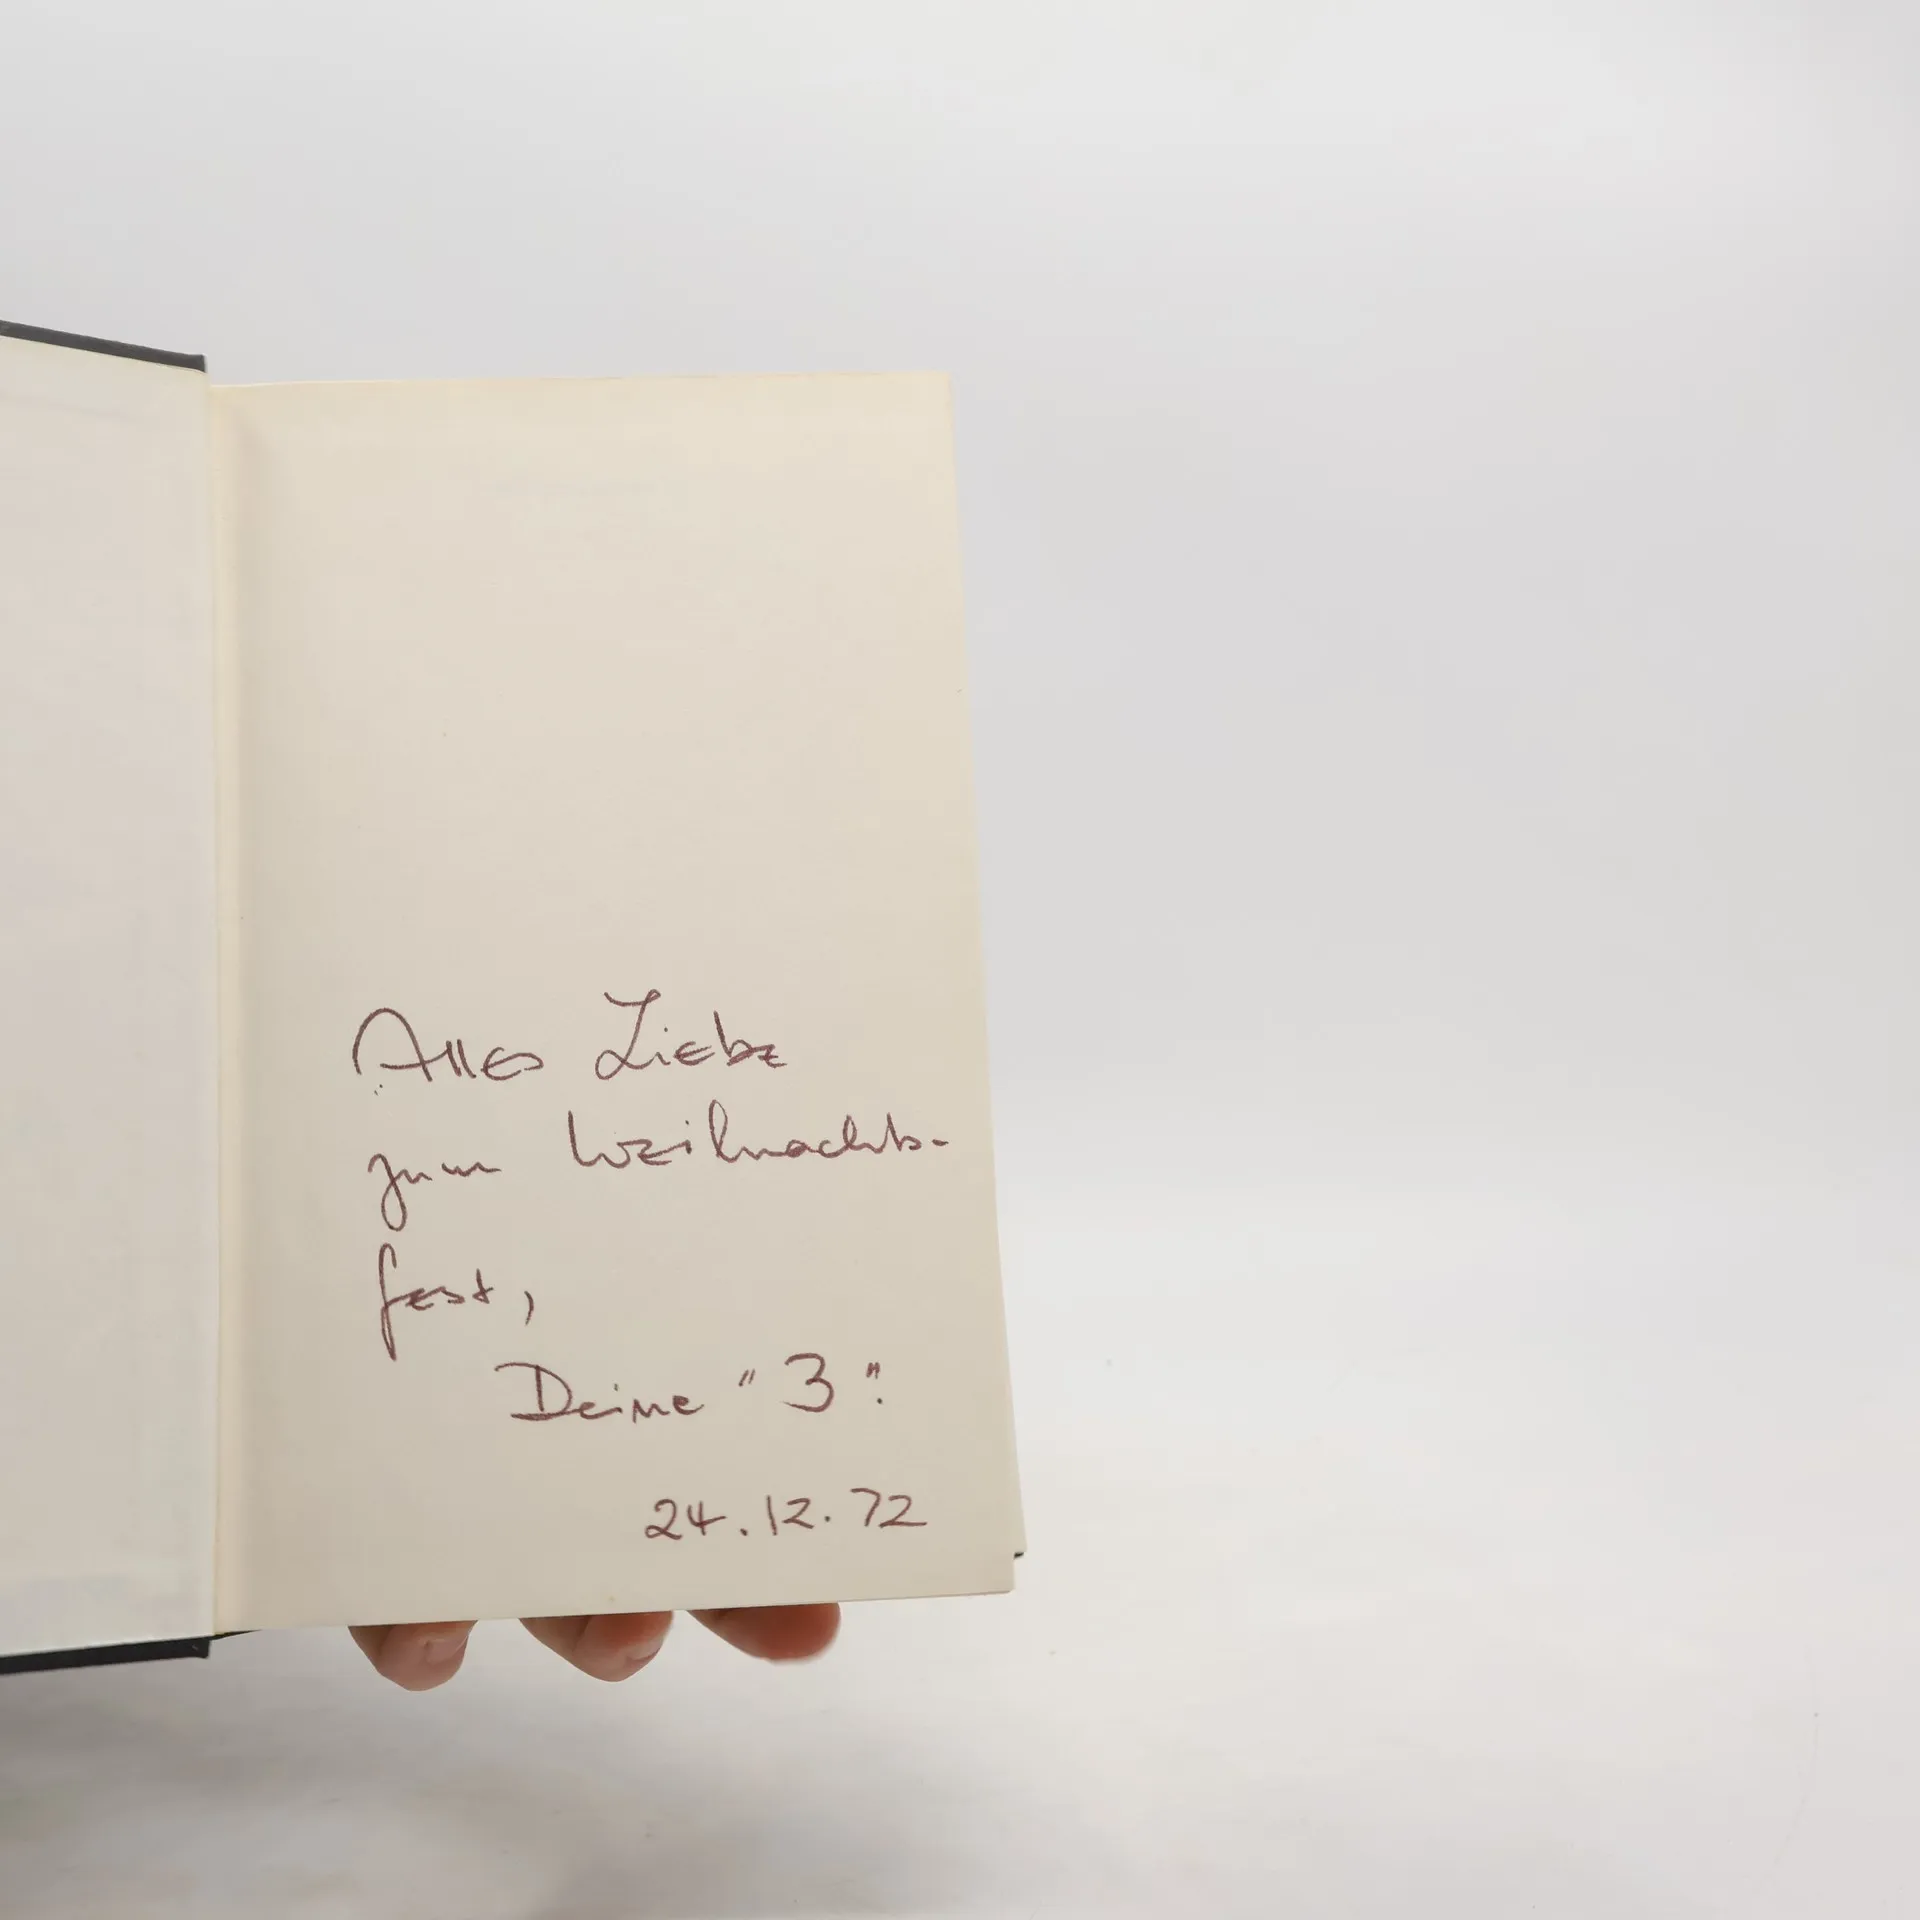 Alles Liebe
zum Weihnachts-
fest,
Deine "3".
24.12.72